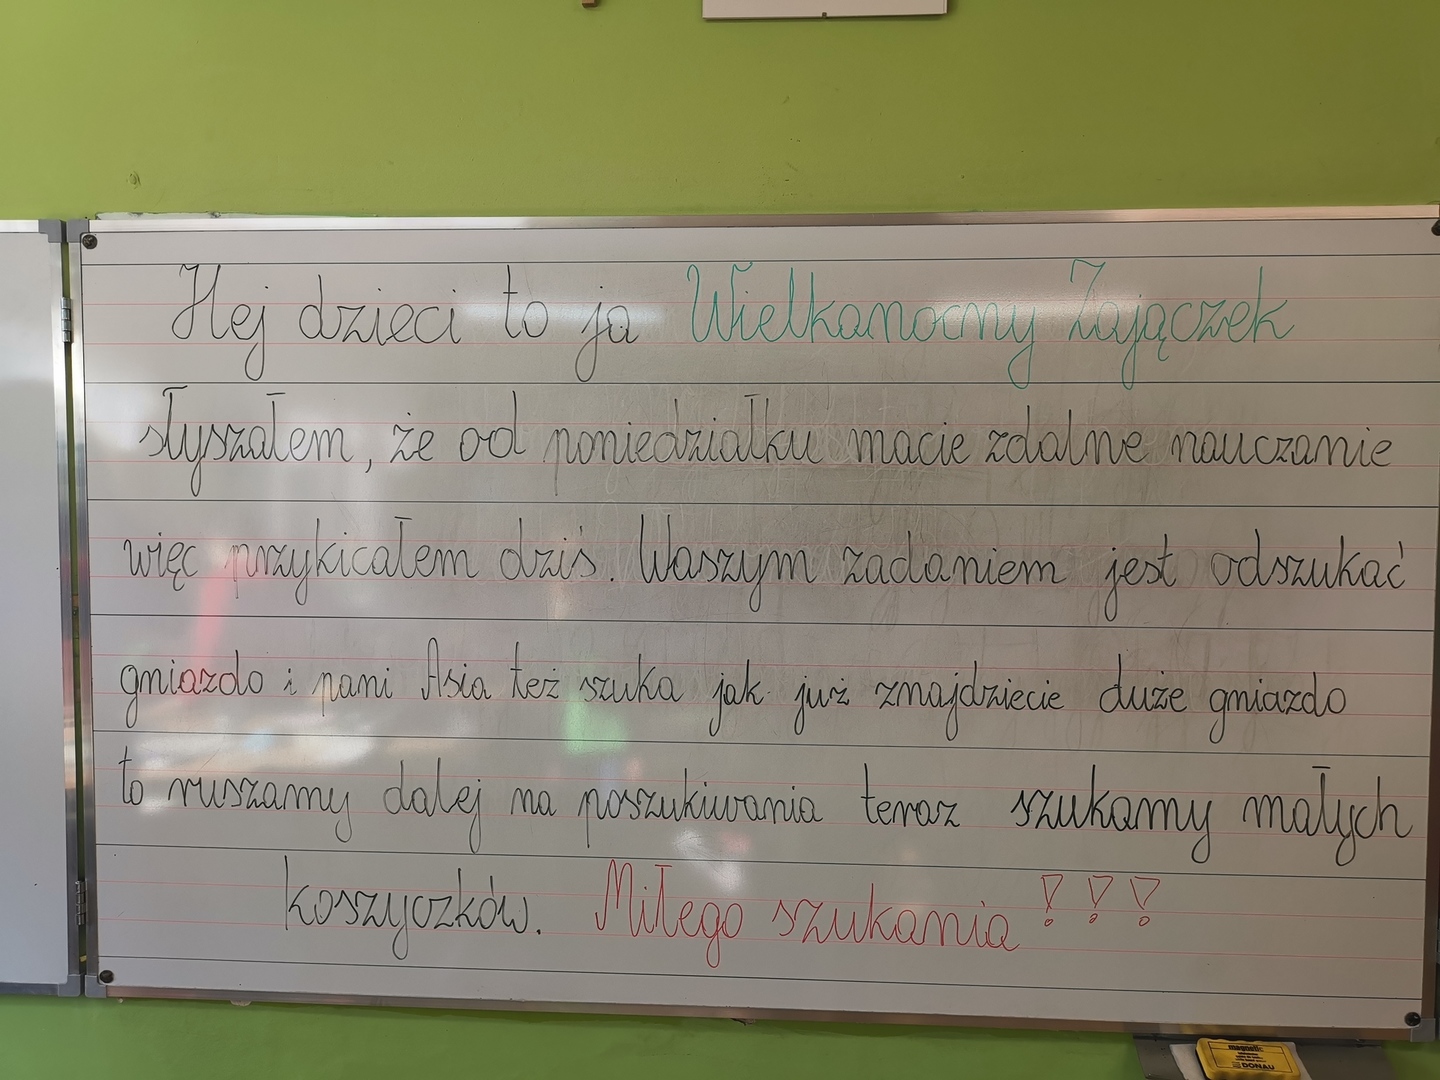 Hej dzieci to ja Wielkanocny Zajączek
słyszałem, że od poniedziałku macie zdalne nauczanie
więc przykicałem dziś. Waszym zadaniem jest odszukać
gniazdo i pani Asia też szuka jak już znajdziecie duże gniazdo
to ruszamy dalej na poszukiwania teraz szukamy małych
koszyczków. Miłego szukania!!!
magnetic
DONAU